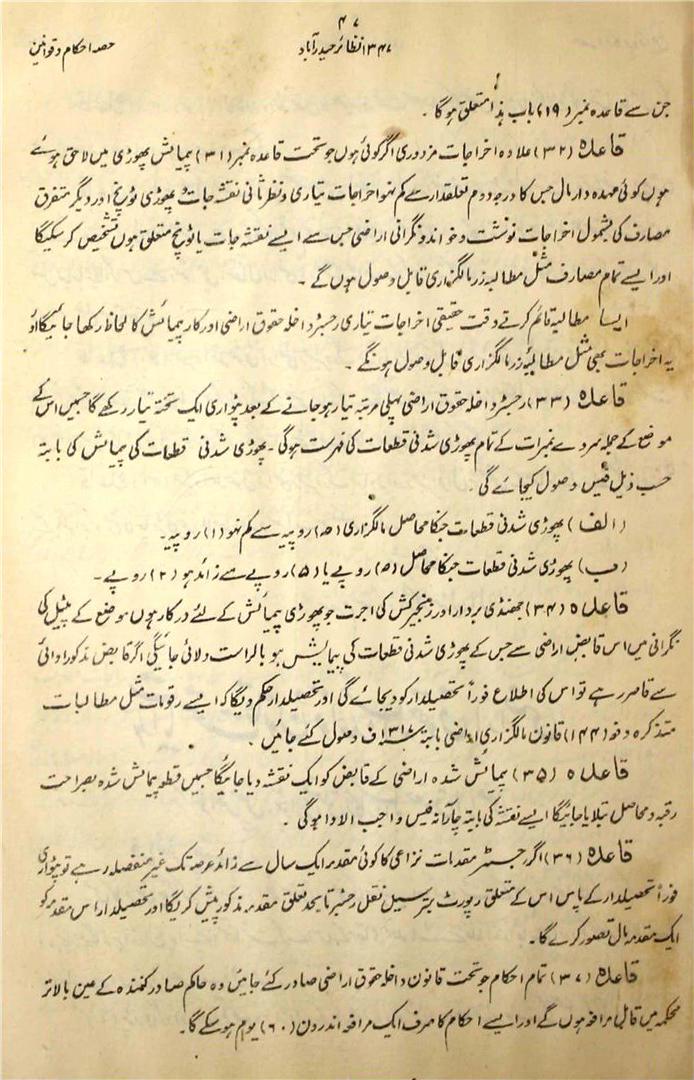 ۴۷
حصہ احکام و قوانین
۱۳۴۷ نظائر حیدرآباد
جن سے قاعدہ نمبر (۱۹) باب ہذا متعلق ہوگا ۔
قاعدہ (۳۲) علاوہ اخراجات مزدوری اگر کوئی ہوں جو تحت قاعدہ نمبر (۳۱) پیمائش پھوڑی میں لاحق ہوئے
ہوں کوئی عہدہ دار مال جس کا درجہ دوم تعلقدار سے کم نہو اخراجات تیاری و نظر ثانی نقشہ جات پھوڑی ٹوپنچ اور دیگر متفرق
مصارف کی بشمول اخراجات نوشت و خواند و نگرانی اراضی جس سے ایسے نقشہ جات یا ٹوپنچ متعلق ہوں تشخیص کر سکیگا
اور ایسے تمام مصارف مثل مطالبہ زر مالگزاری قابل وصول ہوں گے ۔
ایسا مطالبہ قائم کرتے وقت حقیقی اخراجات تیاری رجسٹر داخلہ حقوق اراضی اور کار پیمائش کا لحاظ رکھا جائیگا اور
یہ اخراجات بھی مثل مطالبہ زر مالگزاری قابل وصول ہونگے ۔
قاعدہ (۳۳) رجسٹر داخلہ حقوق اراضی پہلی مرتبہ تیار ہو جانے کے بعد پٹواری ایک تختہ تیار رکھے گا جسمیں اس کے
موضع کے جملہ سروے نمبرات کے تمام پھوڑی شدنی قطعات کی فہرست ہوگی ۔ پھوڑی شدنی قطعات کی پیمائش کی بابتہ
حسب ذیل فیس وصول کیجائے گی ۔
(الف) پھوڑی شدنی قطعات جنکا محاصل مالگزاری (۵) روپیہ سے کم نہو (۱) روپیہ ۔
(ب) پھوڑی شدنی قطعات جنکا محاصل (۵) روپے یا (۵) روپے سے زائد ہو (۲) روپے ۔
قاعدہ (۳۴) جھنڈی بردار اور زنجیر کش کی اجرت جو پھوڑی پیمائش کے لئے درکار ہوں موضع کے پٹیل کی
نگرانی میں اس قابض اراضی سے جس کے پھوڑی شدنی قطعات کی پیمائش ہو بالراست دلائی جائیگی اگر قابض مذکور ادائی
سے قاصر رہے تو اس کی اطلاع فوراً تحصیلدار کو دیجائے گی اور تحصیلدار حکم دیگا کہ ایسے رقومات مثل مطالبات
متذکرہ دفعہ (۱۴۴) قانون مالگزاری اراضی بابتہ ۱۳۱۷ ف وصول کئے جائیں ۔
قاعدہ (۳۵) پیمائش شدہ اراضی کے قابض کو ایک نقشہ دیا جائیگا جسمیں قطعہ پیمائش شدہ بصراحت
رقبہ و محاصل بتلایا جائیگا ایسے نقشہ کی بابتہ چار آنہ فیس واجب الادا ہوگی ۔
قاعدہ (۳۶) اگر رجسٹر مقدمات نزاعی کا کوئی مقدمہ ایک سال سے زائد عرصہ تک غیر منفصلہ رہے تو پٹواری
فوراً تحصیلدار کے پاس اس کے متعلق رپورٹ بترسیل نقل رجسٹر تا بحد تعلق مقدمہ مذکور پیش کریگا اور تحصیلدار اس مقدمہ کو
ایک مقدمہ مال تصور کرے گا ۔
قاعدہ (۳۷) تمام احکام جو تحت قانون داخلہ حقوق اراضی صادر کئے جائیں وہ حاکم صادر کنندہ کے عین بالاتر
محکمہ میں قابل مرافعہ ہوں گے اور ایسے احکام کا صرف ایک مرافعہ اندرون (۶۰) یوم ہوسکے گا ۔